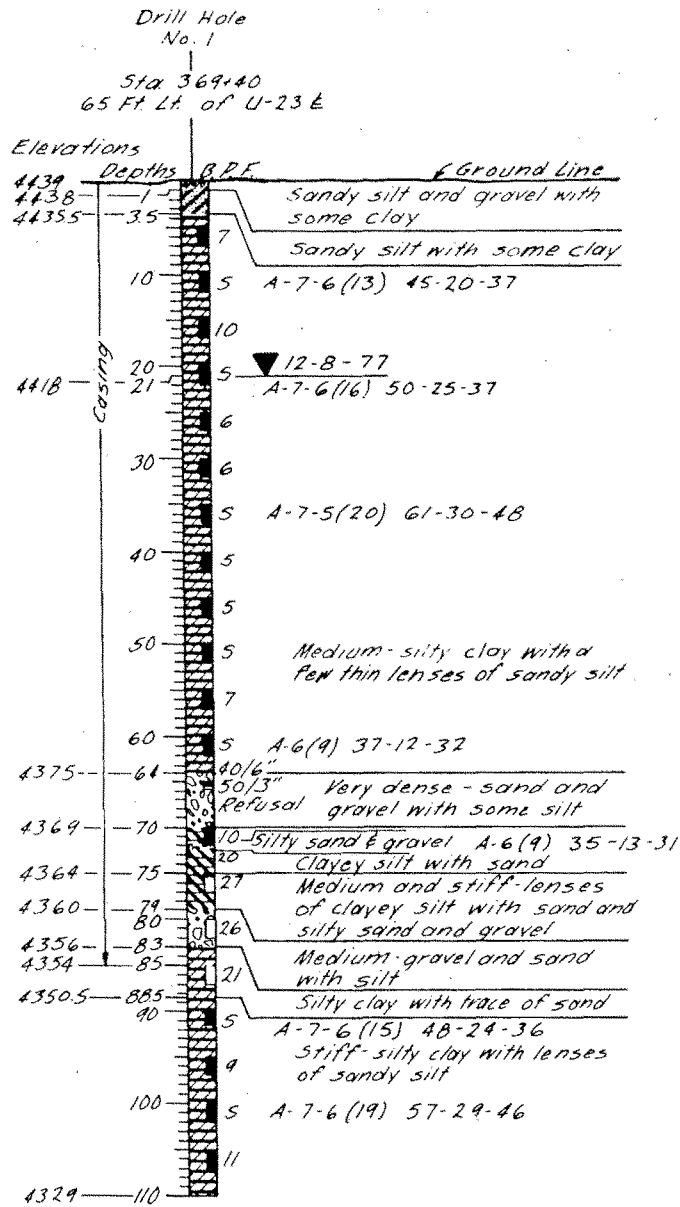 Drill Hole
No. 1
Sta 369+40
65 Ft. Lt. of U-23 ℄
Elevations
Depths B.P.F. Ground Line
4439
4438 1 Sandy silt and gravel with
4435.5 3.5 some clay
7 Sandy silt with some clay
10 S A-7-6(13) 45-20-37
10
Casing
20 12-8-77
4418 21 S A-7-6(16) 50-25-37
6
30 6
S A-7-5(20) 61-30-48
40 5
5
50 S Medium-silty clay with a
few thin lenses of sandy silt
7
60 S A-6(9) 37-12-32
4375 64 40/6"
50/3" Very dense - sand and
Refusal gravel with some silt
4369 70
10 Silty sand & gravel A-6(9) 35-13-31
20 Clayey silt with sand
4364 75
27 Medium and stiff-lenses
of clayey silt with sand and
4360 79 silty sand and gravel
80 26
4356 83 Medium-gravel and sand
4354 85 with silt
21
4350.5 88.5 Silty clay with trace of sand
90 S A-7-6(15) 48-24-36
Stiff-silty clay with lenses
9 of sandy silt
100 S A-7-6(19) 57-29-46
11
4329 110